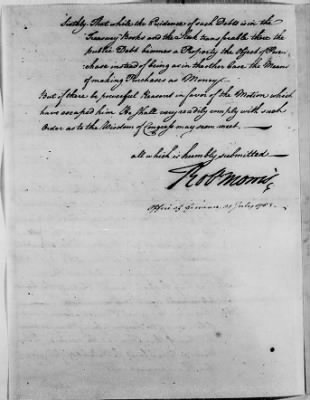 Lastly. That while the Evidence of such Debts is in the
Treasury Books and the Stock transferable there the
public Debt becomes a Property the Object of Pur-
chase instead of being as in the other Case the Means
of making Purchases as Money.
But if there be powerful Reasons in favor of the Motion which
have escaped him He shall very readily comply with such
Order as to the Wisdom of Congress may seem meet.
all which is humbly submitted
Rob Morris
Office of Finance July